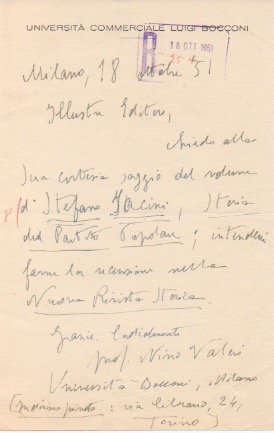 UNIVERSITÀ COMMERCIALE LUIGI BOCCONI
B 10 OTT 1951
Milano, 18 ottobre 51
Illustre Editore,
chiedo alla
Sua cortesia saggio del volume
di Stefano Jacini, Storia
del Partito Popolare; intenderei
farne la recensione nella
Nuova Rivista Storica.
Grazie. Cordialmente
prof. Nino Valeri
Università Bocconi, Milano
(indirizzo privato: via 24,
Torino)